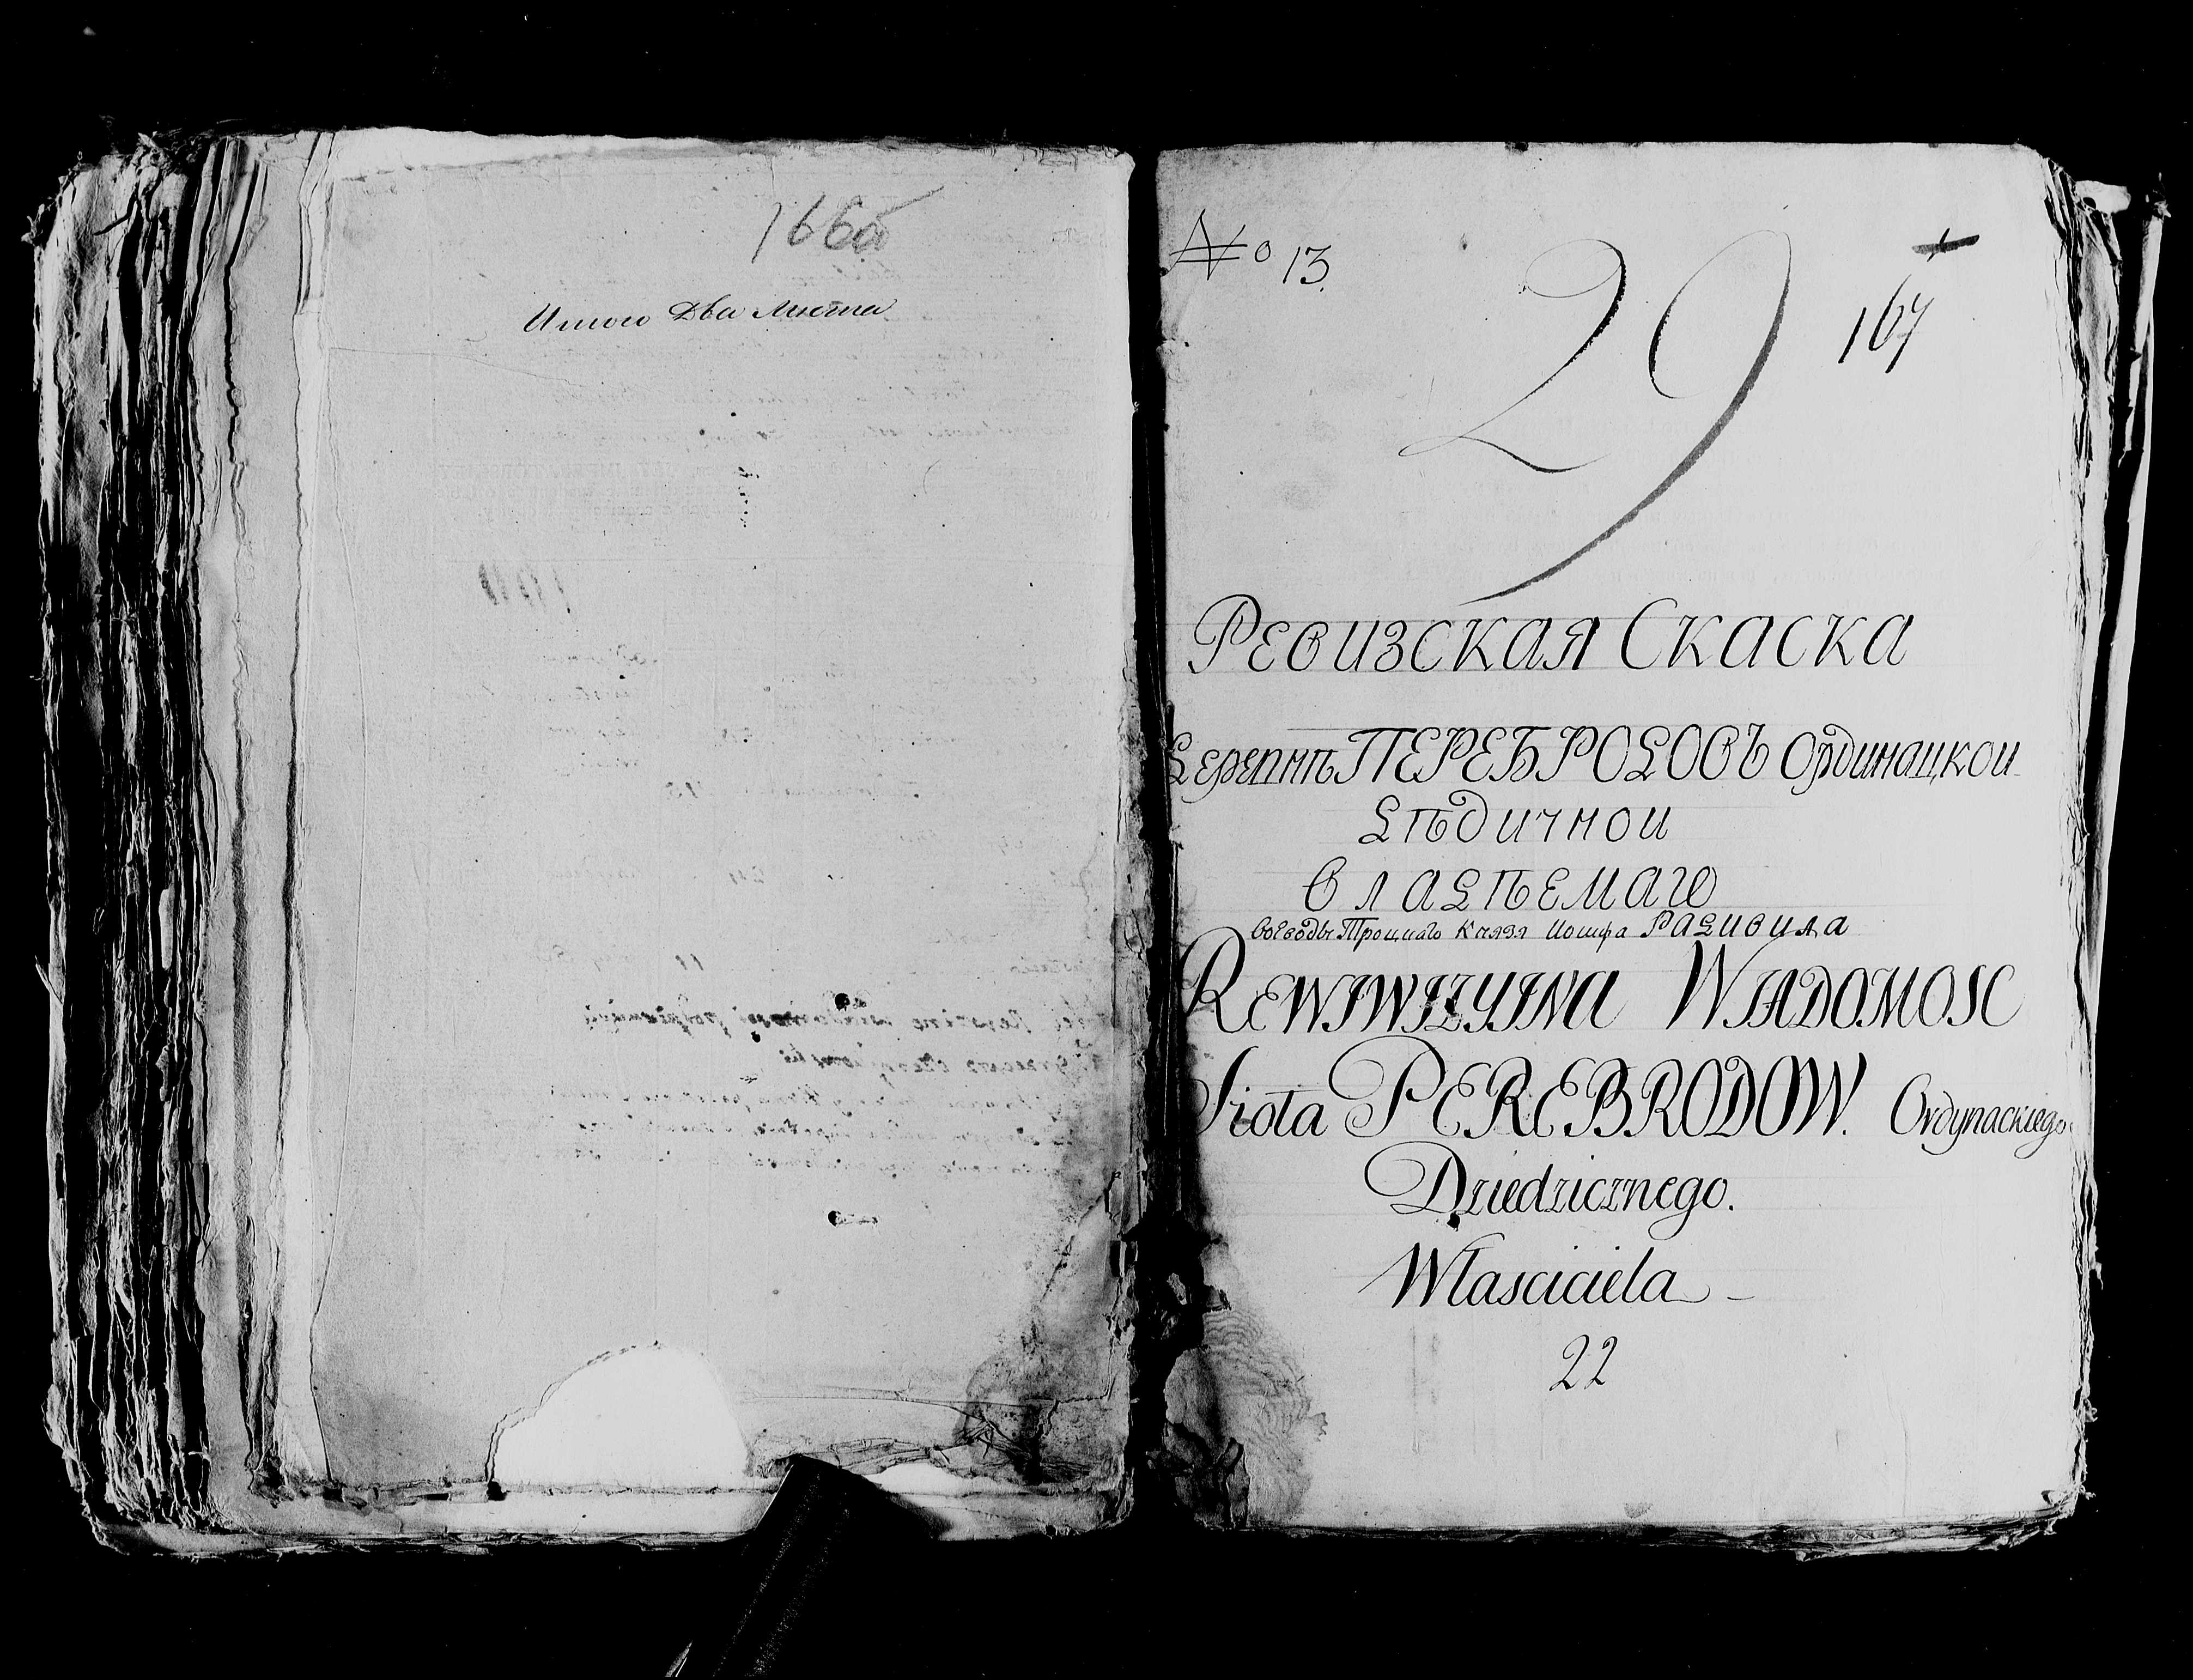 166а
Итого два листа
No 13.
29
167
Ревизская Скаска
Деревнѣ ПЕРЕБРОДОВЪ Ординацкои
Дѣдичнои
Владѣемаго
воеводы Троцкаго Князя Иосифа РАДИВИЛА
REWIWIZYINA WIADOMOSC
Sioła PEREBRODOW. Ordynackiego
Dziedzicznego.
Własciciela
22